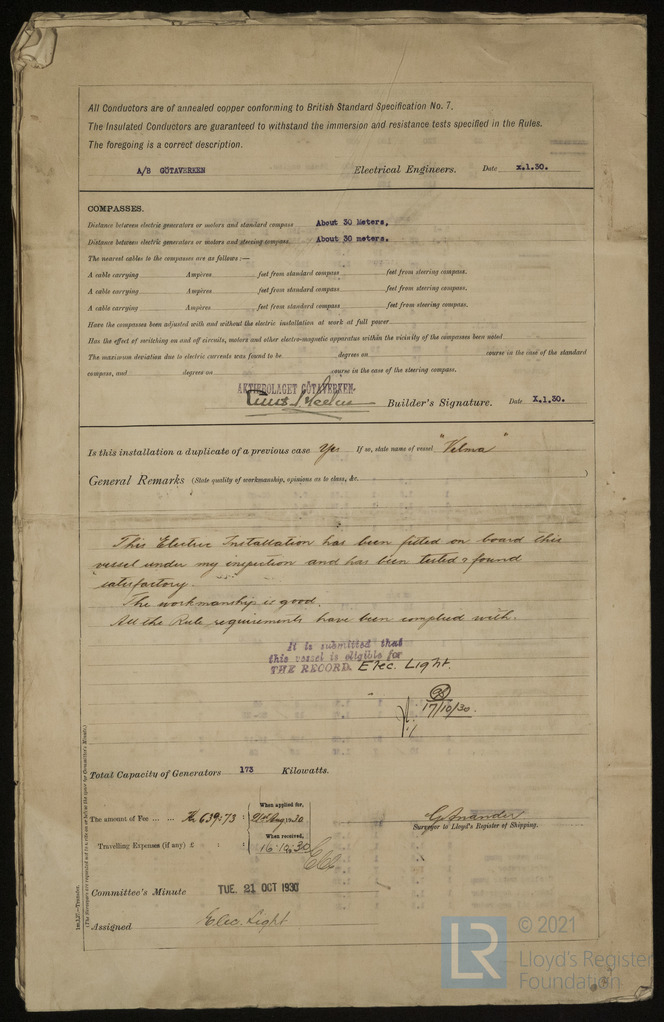 All Conductors are of annealed copper conforming to British Standard Specification No. 7.
The Insulated Conductors are guaranteed to withstand the immersion and resistance tests specified in the Rules.
The foregoing is a correct description.
A/B GÖTAVERKEN Electrical Engineers. Date X.1.30.
COMPASSES.
Distance between electric generators or motors and standard compass About 30 Meters.
Distance between electric generators or motors and steering compass About 30 meters.
The nearest cables to the compasses are as follows :—
A cable carrying Ampères feet from standard compass feet from steering compass.
A cable carrying Ampères feet from standard compass feet from steering compass.
A cable carrying Ampères feet from standard compass feet from steering compass.
Have the compasses been adjusted with and without the electric installation at work at full power
Has the effect of switching on and off circuits, motors and other electro-magnetic apparatus within the vicinity of the compasses been noted
The maximum deviation due to electric currents was found to be degrees on course in the case of the standard
compass, and degrees on course in the case of the steering compass.
AKTIEBOLAGET GÖTAVERKEN
Builder's Signature. Date X.1.30.
Is this installation a duplicate of a previous case Yes If so, state name of vessel "Velma"
General Remarks (State quality of workmanship, opinions as to class, &c.
This Electric Installation has been fitted on board this
vessel under my inspection and has been tested & found
satisfactory.
The workmanship is good.
All the Rule requirements have been complied with.
It is submitted that
this vessel is eligible for
THE RECORD. Elec. Light.
17/10/30.
Total Capacity of Generators 173 Kilowatts.
The amount of Fee ... ... 639:73 When applied for, 21st Aug 1930
When received,
Travelling Expenses (if any) £ : : 16.10.30
Surveyor to Lloyd's Register of Shipping.
Committee's Minute TUE. 21 OCT 1930
Assigned Elec. Light
LR © 2021
Lloyd's Register
Foundation